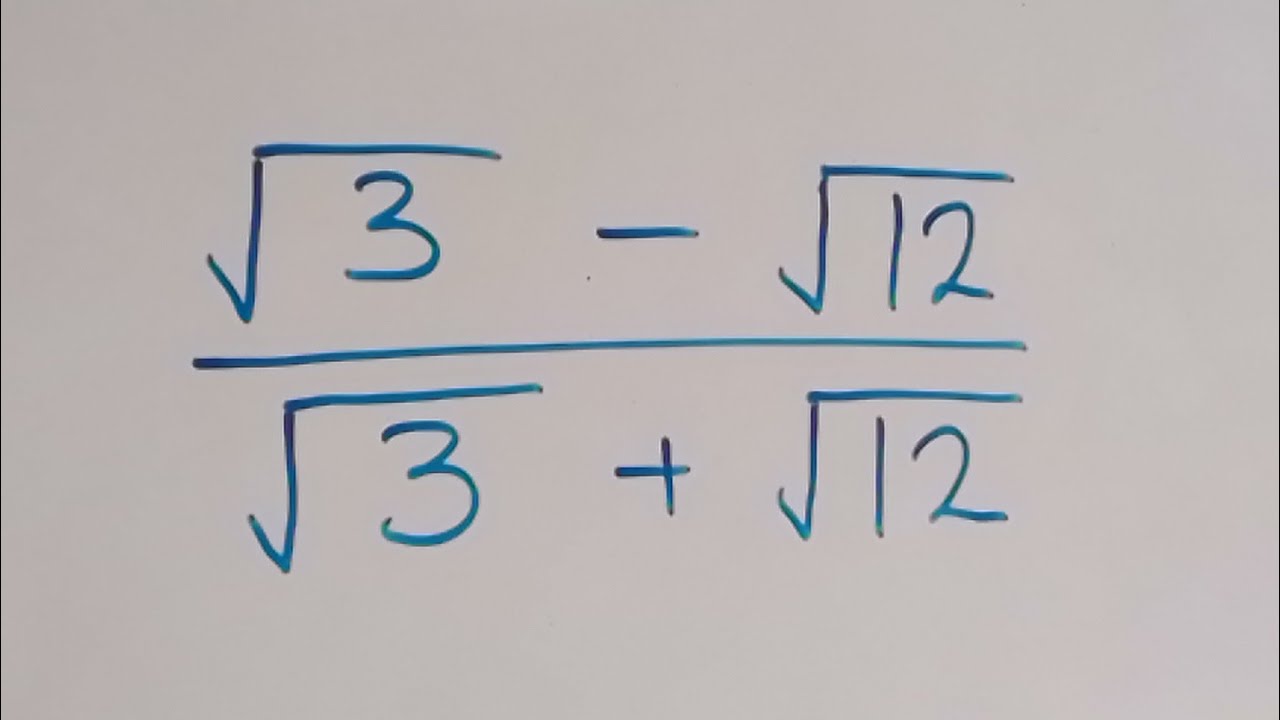 √3 - √12
√3 + √12